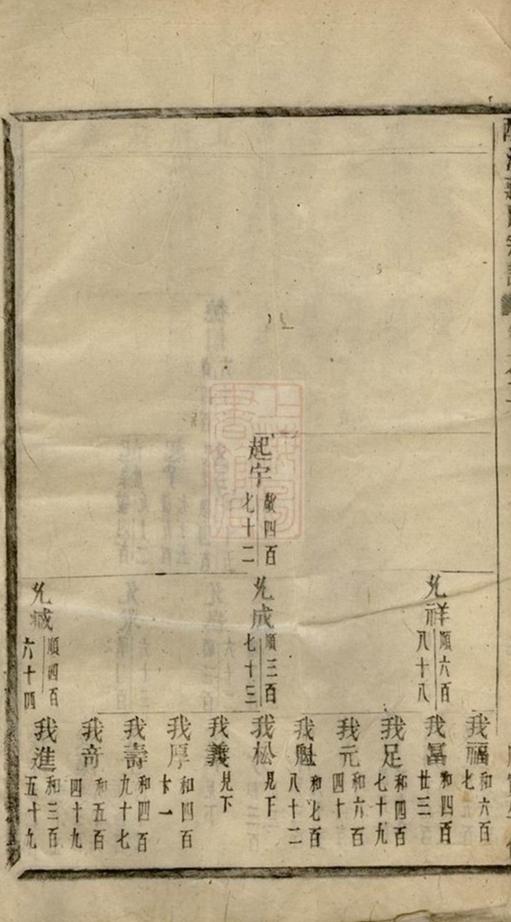 起宇 敬四百七十二
允祥 順六百八十八
允成 順三百七十三
允城 順四百六十四
我福 和六百七
我富 和四百廿三
我足 和四百七十九
我元 和六百四十
我魁 和七百八十二
我松 見下
我義 見下
我厚 和四百卜一
我壽 和四百九十七
我奇 和五百四十九
我進 和三百五十九